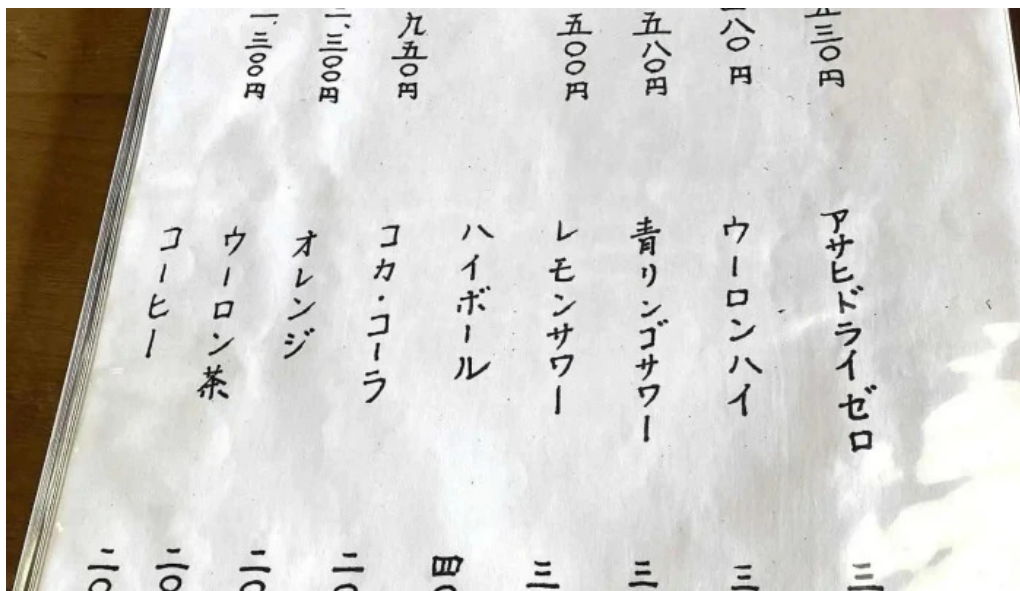 五三〇円
八〇円
五八〇円
五〇〇円
九五〇円
三〇〇円
三〇〇円
アサヒドライゼロ
ウーロンハイ
青リンゴサワー
レモンサワー
ハイボール
コカ・コーラ
オレンジ
ウーロン茶
コーヒー
三
三
三
三
四〇
二〇
二〇
二〇
二〇